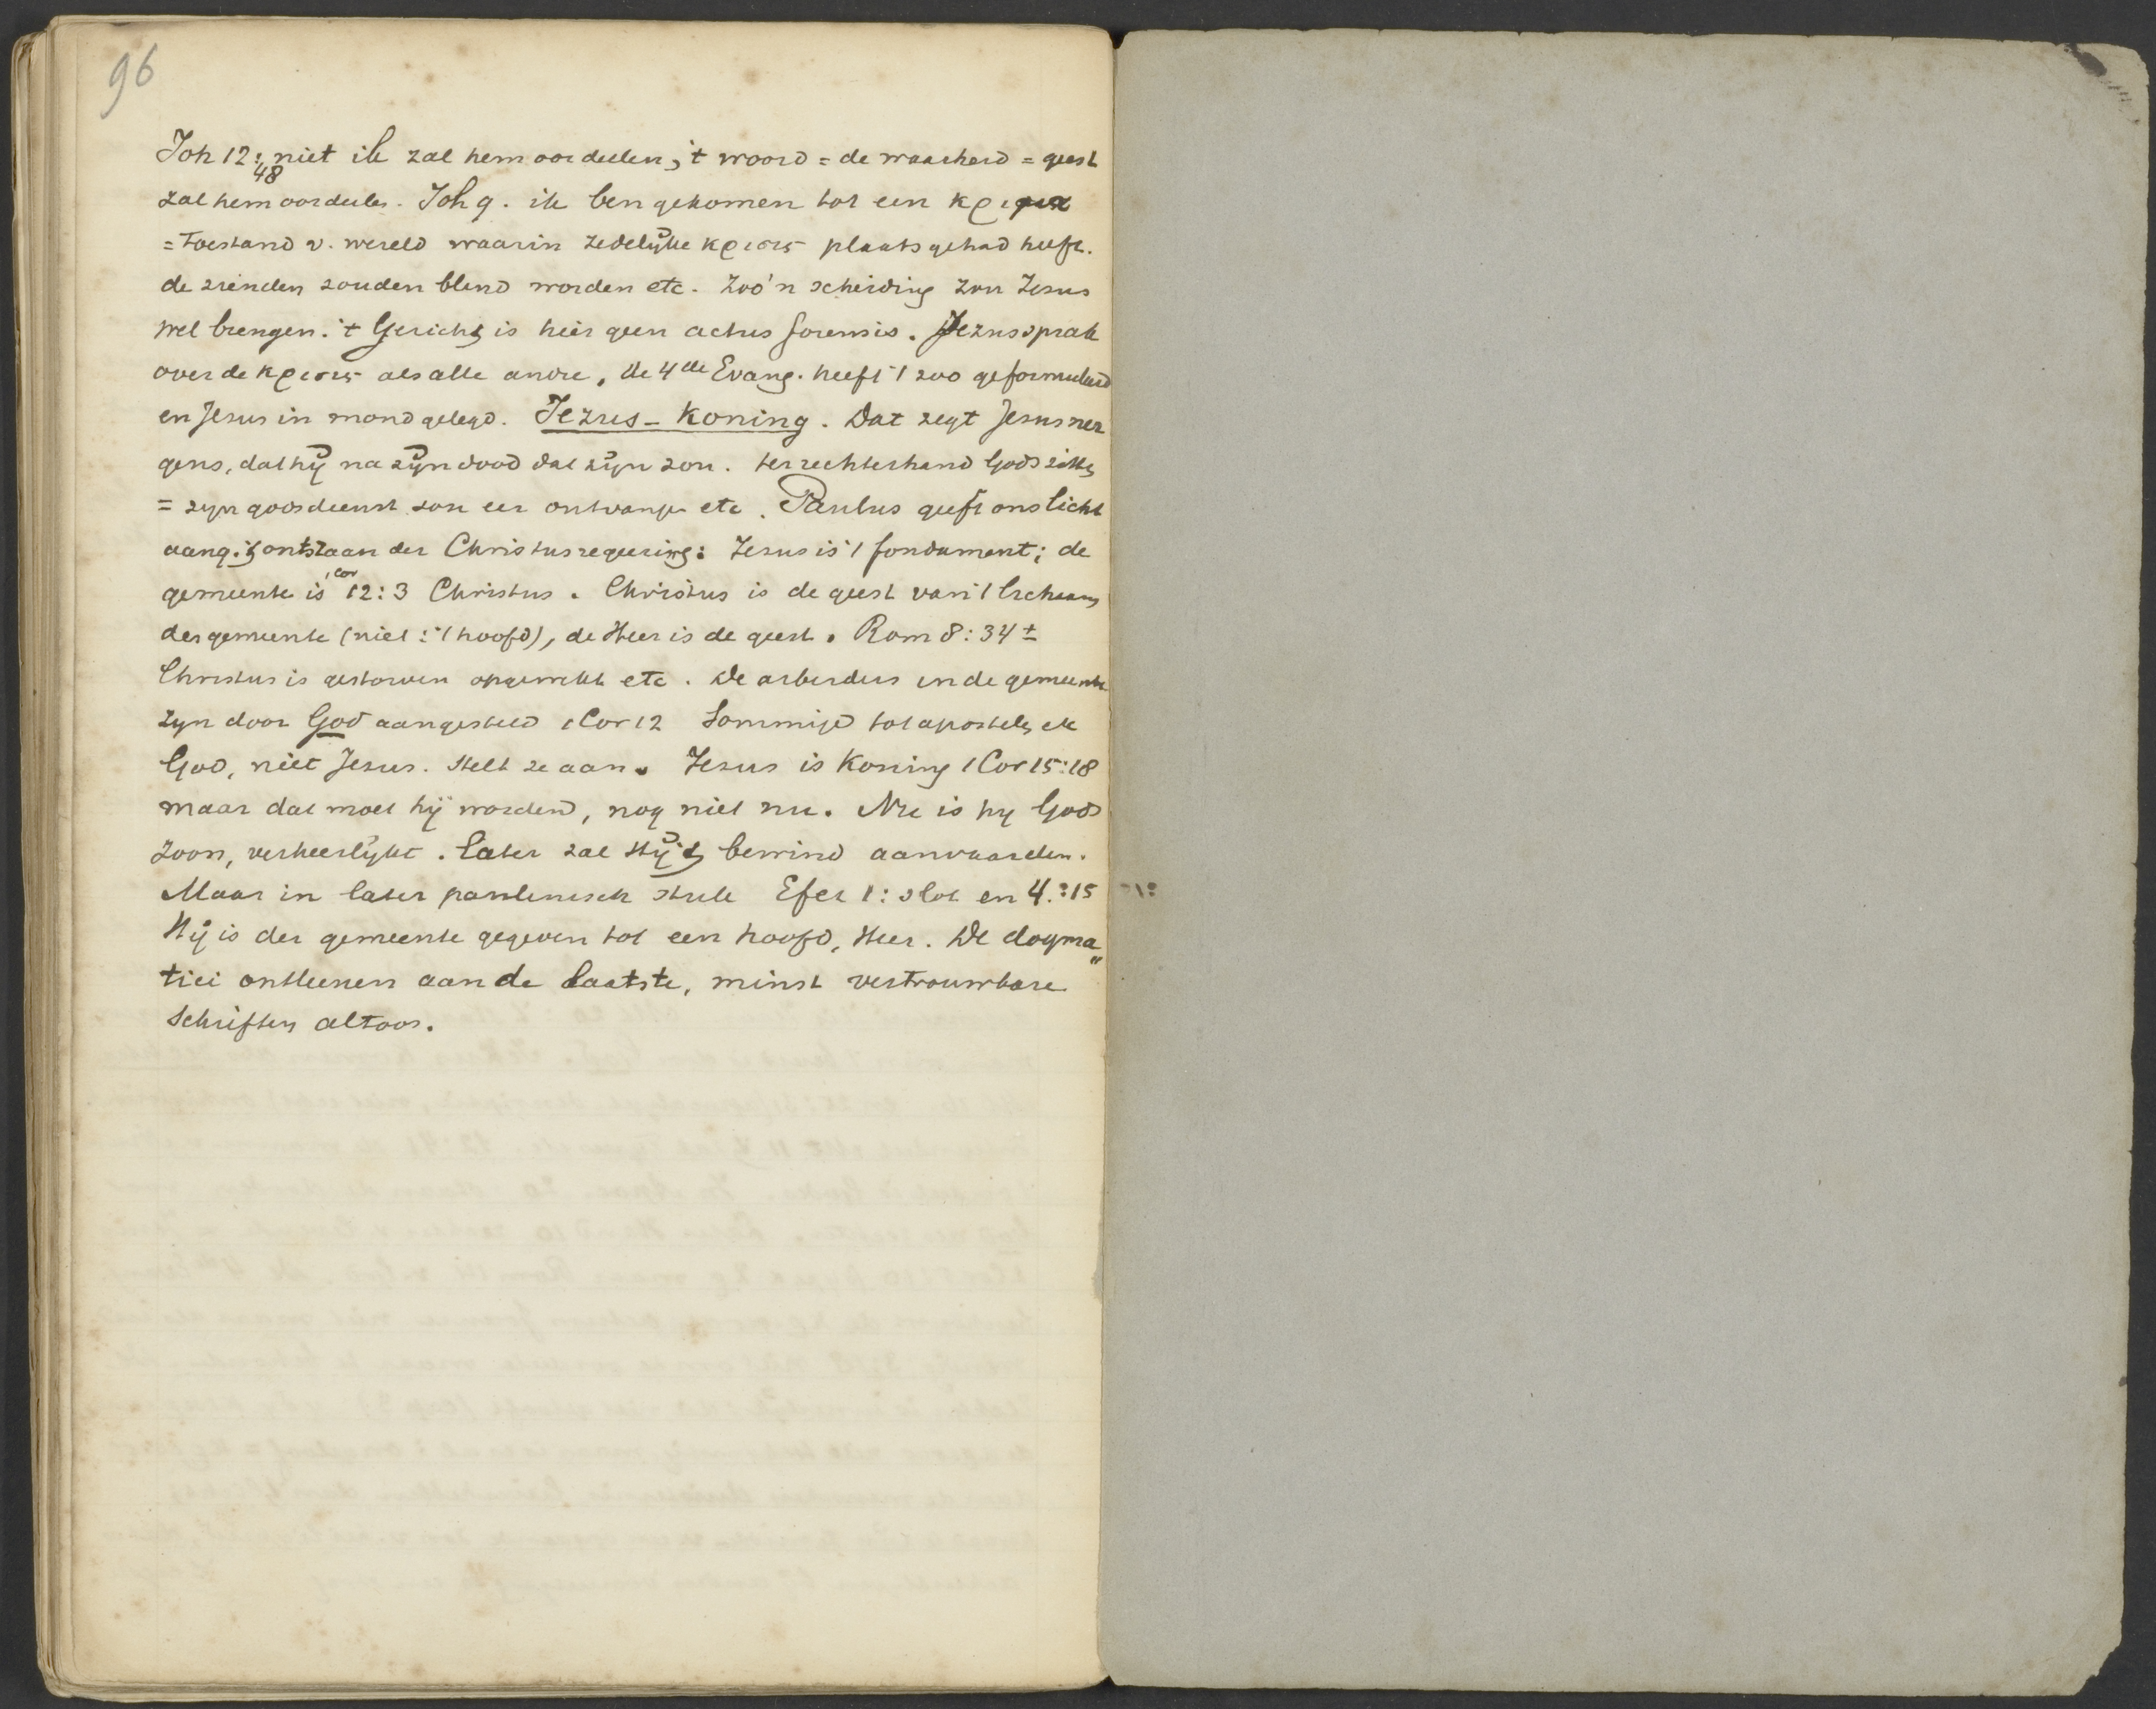 96
Joh 12:48 niet ik zal hem oordeelen, 't woord = de waarheid = geest
zal hem oordeelen. Joh 9. ik ben gekomen tot een κριμα
= toestand v. wereld waarin zedelijke κρισις plaats gehad heeft.
de zienden zouden blind worden etc. Zoo'n scheiding zou Jezus
wel brengen. 't Gericht is hier geen actus forensis. Jezus sprak
over de κρισις als alle andre, de 4de Evang. heeft 't zoo geformuleerd
en Jesus in mond gelegd. Jezus - Koning. Dat zegt Jesus ner
gens, dat hij na zijn dood dat zijn zou. ter rechterhand Gods zitten
= zijn godsdienst zou eer ontvangen etc. Paulus geeft ons licht
aang. 't ontstaan der Christusregeering: Jezus is 't fondament; de
gemeente is 1 Cor 12:3 Christus. Christus is de geest van 't lichaam
der gemeente (niet: 't hoofd), de Heer is de geest. Rom 8:34 ±
Christus is gestorven opgewekt etc. De arbeiders in de gemeente
zijn door God aangesteld 1 Cor 12 Sommige tot apostelen etc
God, niet Jesus. stelt ze aan. Jezus is Koning 1 Cor 15:18
maar dat moet hij worden, nog niet nu. Nu is hij Gods
Zoon, verheerlijkt. later zal Hij 't bewind aanvaarden.
Maar in later paulinisch stuk Efez 1: slot en 4.:15
Hij is der gemeente gegeven tot een hoofd, Heer. De dogma„
tici ontleenen aan de laatste, minst vertrouwbare
schriften altoos.